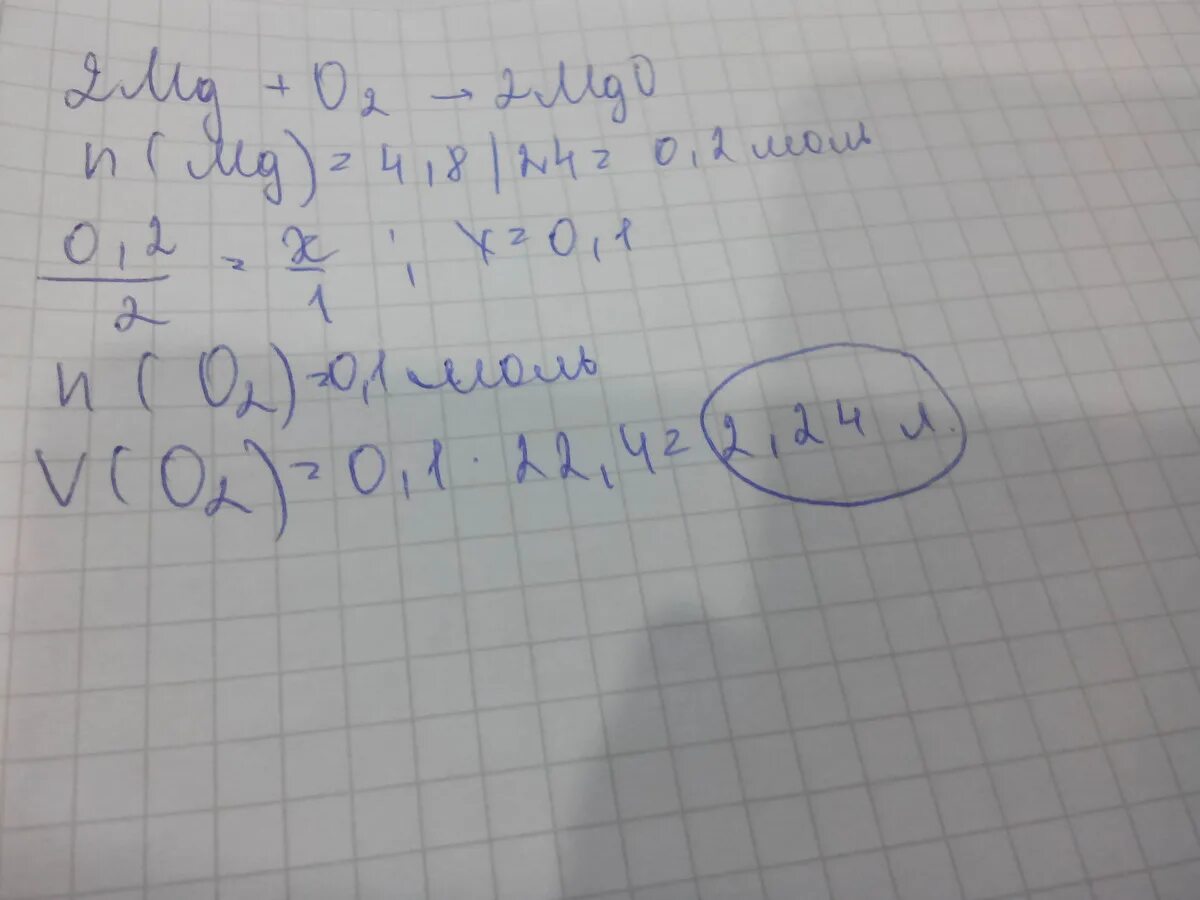 2Mg + O₂ → 2MgO
n(Mg) = 4,8 / 24 = 0,2 моль
0,2/2 = x/1 ; x = 0,1
n(O₂) = 0,1 моль
V(O₂) = 0,1 · 22,4 = 2,24 л.